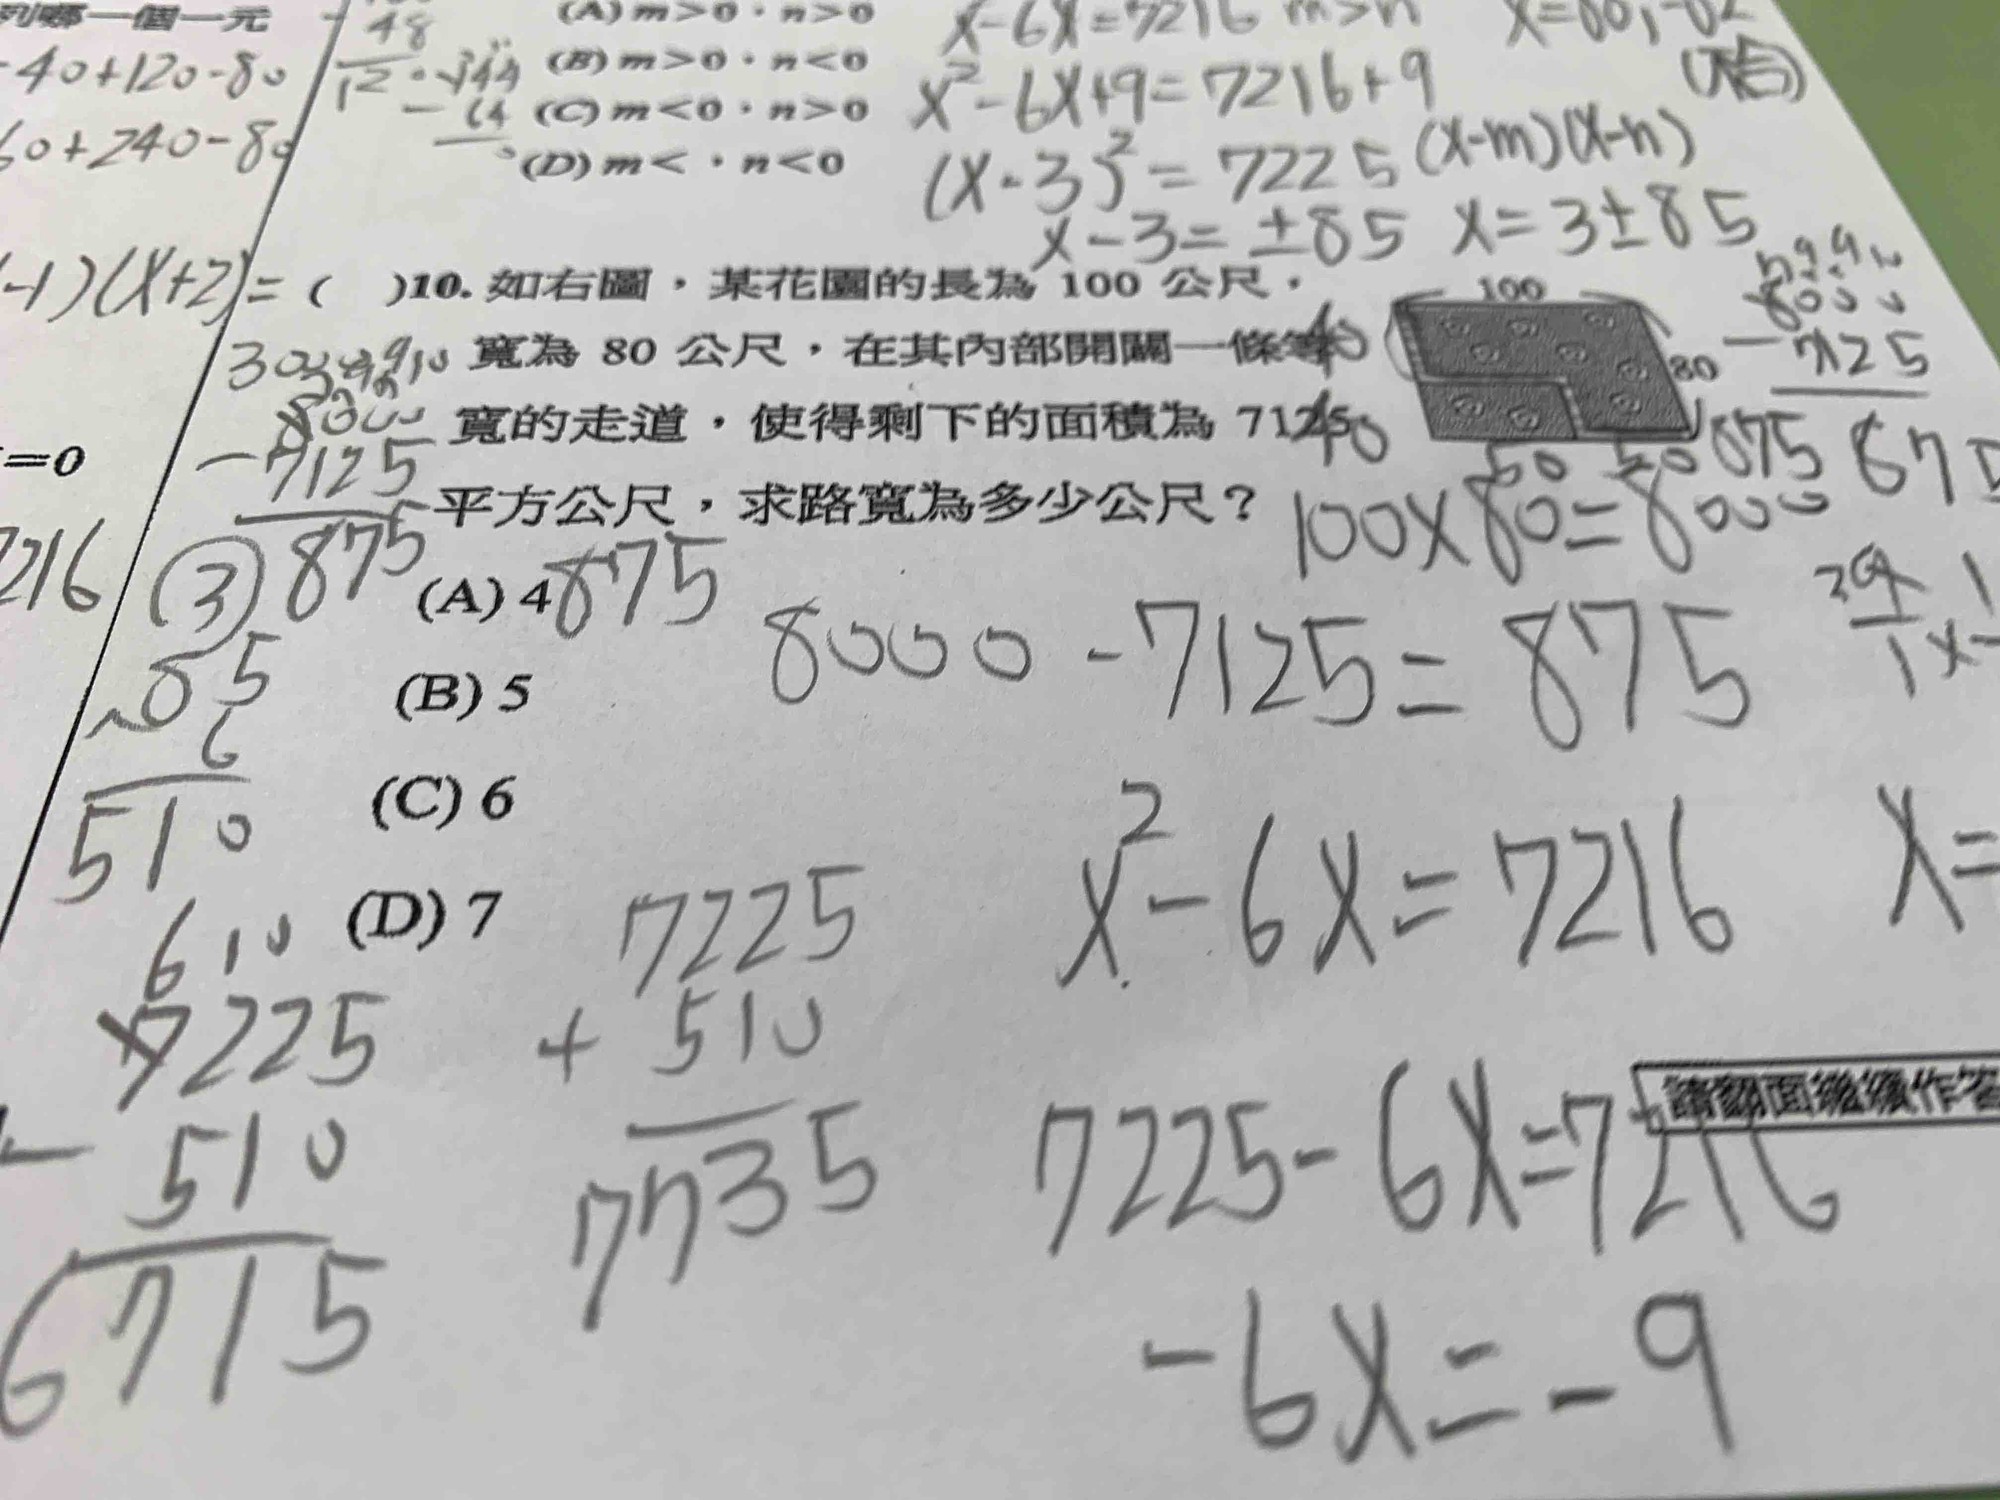 列哪一個一元
-40+120-80
60+240-80
-1)(x+2)=
=0
7216
48
12
144
- 64
(A) m>0,n>0
(B) m>0,n<0
(C) m<0,n>0
(D) m<,n<0
x-6x=7216 m>n
x²-6x+9=7216+9
(x-3)²=7225 (x-m)(x-n)
x-3=±85 x=3±85
(不合)
( )10. 如右圖,某花園的長為 100 公尺,
寬為 80 公尺,在其內部開闢一條等
寬的走道,使得剩下的面積為 7125
平方公尺,求路寬為多少公尺?
100
80
40
40
50 50
8000
- 7125
875 675
100×80=8000
8000
-7125
875
(3)
(A) 4
875
8000-7125=875
(B) 5
(C) 6
(D) 7
85
6
510
6 10
7225
- 510
6715
7225
+ 510
7735
x²-6x=7216
x=
7225-6x=7216
請翻面繼續作答
-6x=-9